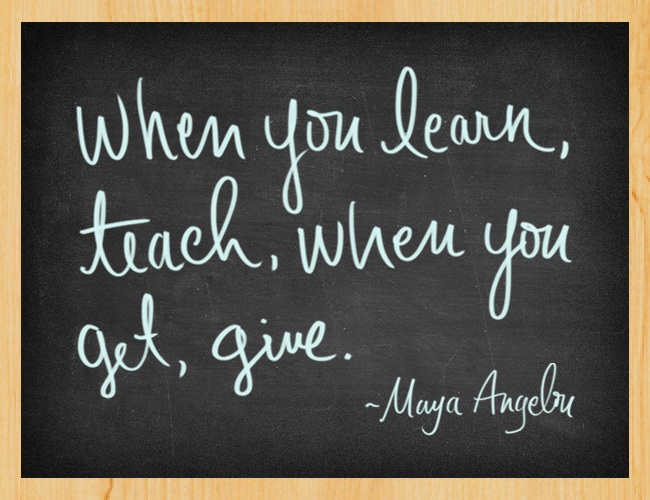 When you learn,
teach, when you
get, give.
~Maya Angelou